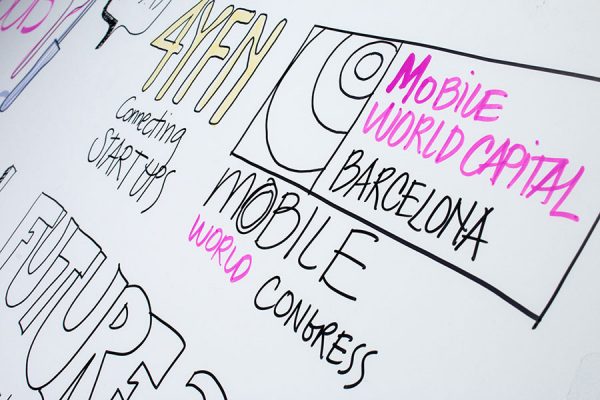 4YFN
Connecting
STARTUPS
MOBILE
WORLD CAPITAL
BARCELONA
MOBILE
WORLD
CONGRESS
FUTURE